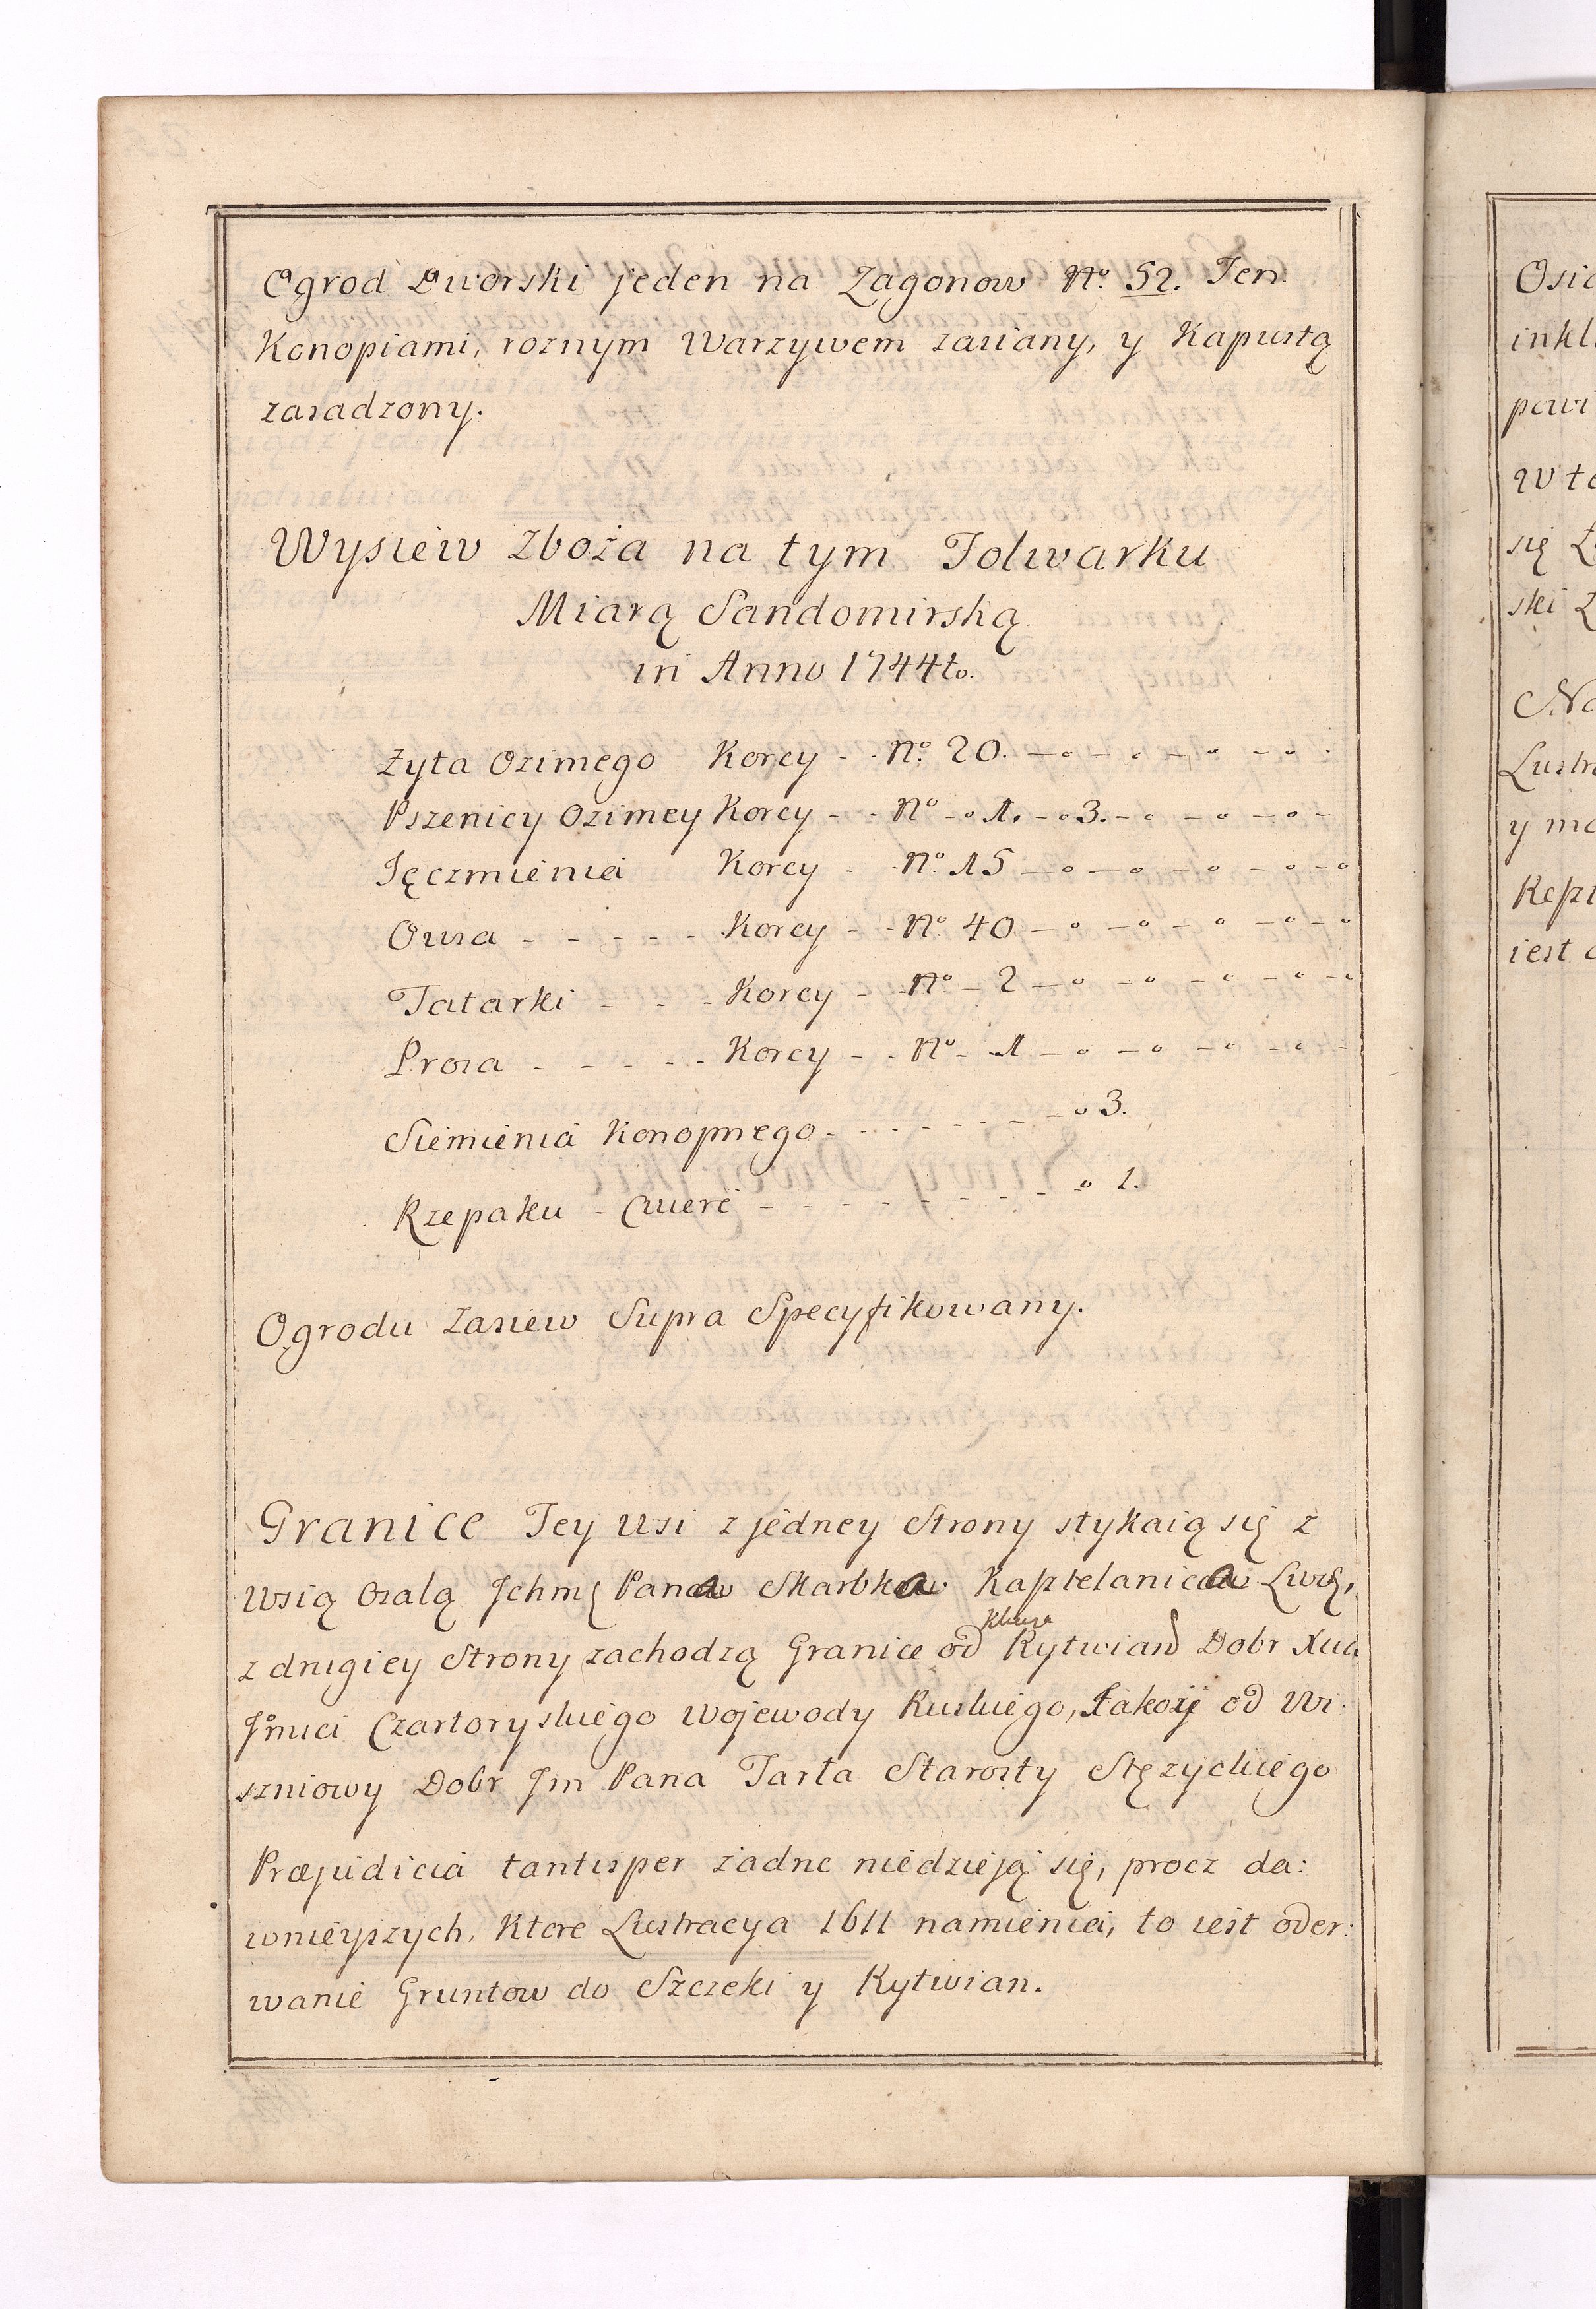 Ogrod Dworski jeden na Zagonow No. 52. Ten
Konopiami, roznym Warzywem zasiany, y Kapustą
zasadzony.
Wysiew Zboża na tym Folwarku
Miarą Sandomirską
in Anno 1744to.
Żyta Ozimego Korcy - - No. 20.
Pszenicy Ozimey Korcy - - No - 1. - 3.
Jęczmienia Korcy - - No. 15
Owsa - - - - - Korcy - - No. 40
Tatarki - - - Korcy - - No. - 2
Prosa - - - - - Korcy - - No - 1
Siemienia Konopnego - - - - - - 3.
Rzepaku - Cwierć - - - - - - - - 1.
Ogrodu Zasiew Supra Specyfikowany.
Granice Tey Wsi z jedney Strony stykaią się z
Wsią Osalą Jchmę Pana Skarbka Kasztelanica Lwo,
Klucza
z drugiey Strony zachodzą Granice od Kytwian Dobr Xcia
Jmci Czartoryskiego Wojewody Ruskiego, Jakoż od Wi:
szniowy Dobr Jm Pana Tarła Starosty Stężyckiego
Præjudicia tantisper żadne niedzieją się, procz da:
wnieyszych, Ktore Lustracya 1611 namienia, to iest oder:
wanie Gruntow do Szczeki y Kytwian.
Osia
inkl
powi
W to
się
ski
Na
Lustr
y ma
Kapt
iest